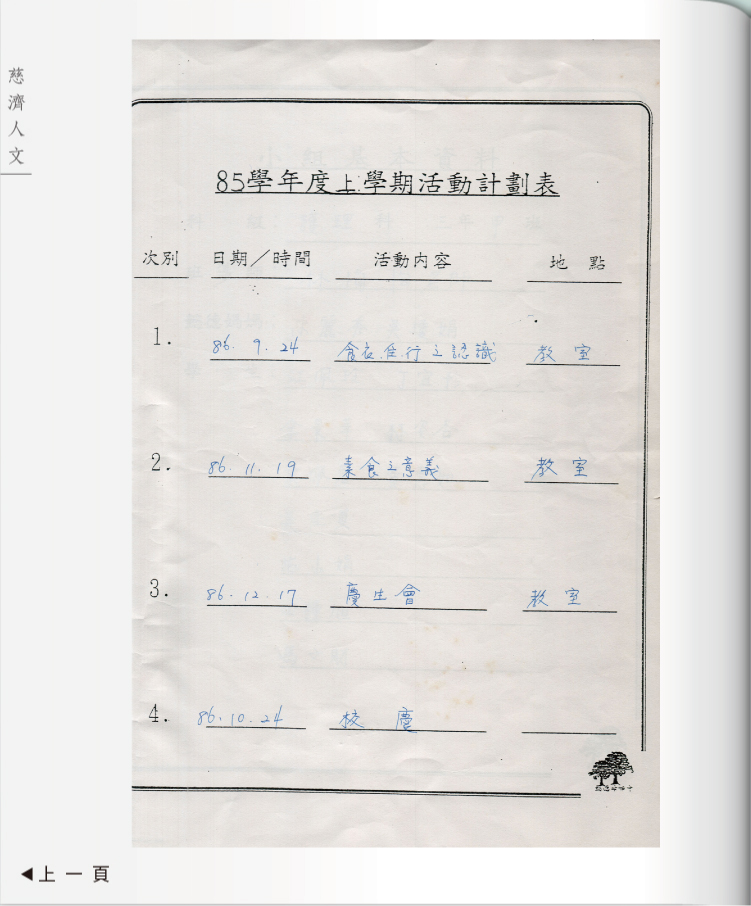 慈濟人文
85學年度上學期活動計劃表
次別 日期／時間 活動內容 地 點
1. 86.9.24 食衣住行之認識 教室
2. 86.11.19 素食之意義 教室
3. 86.12.17 慶生會 教室
4. 86.10.24 校慶
◀上一頁